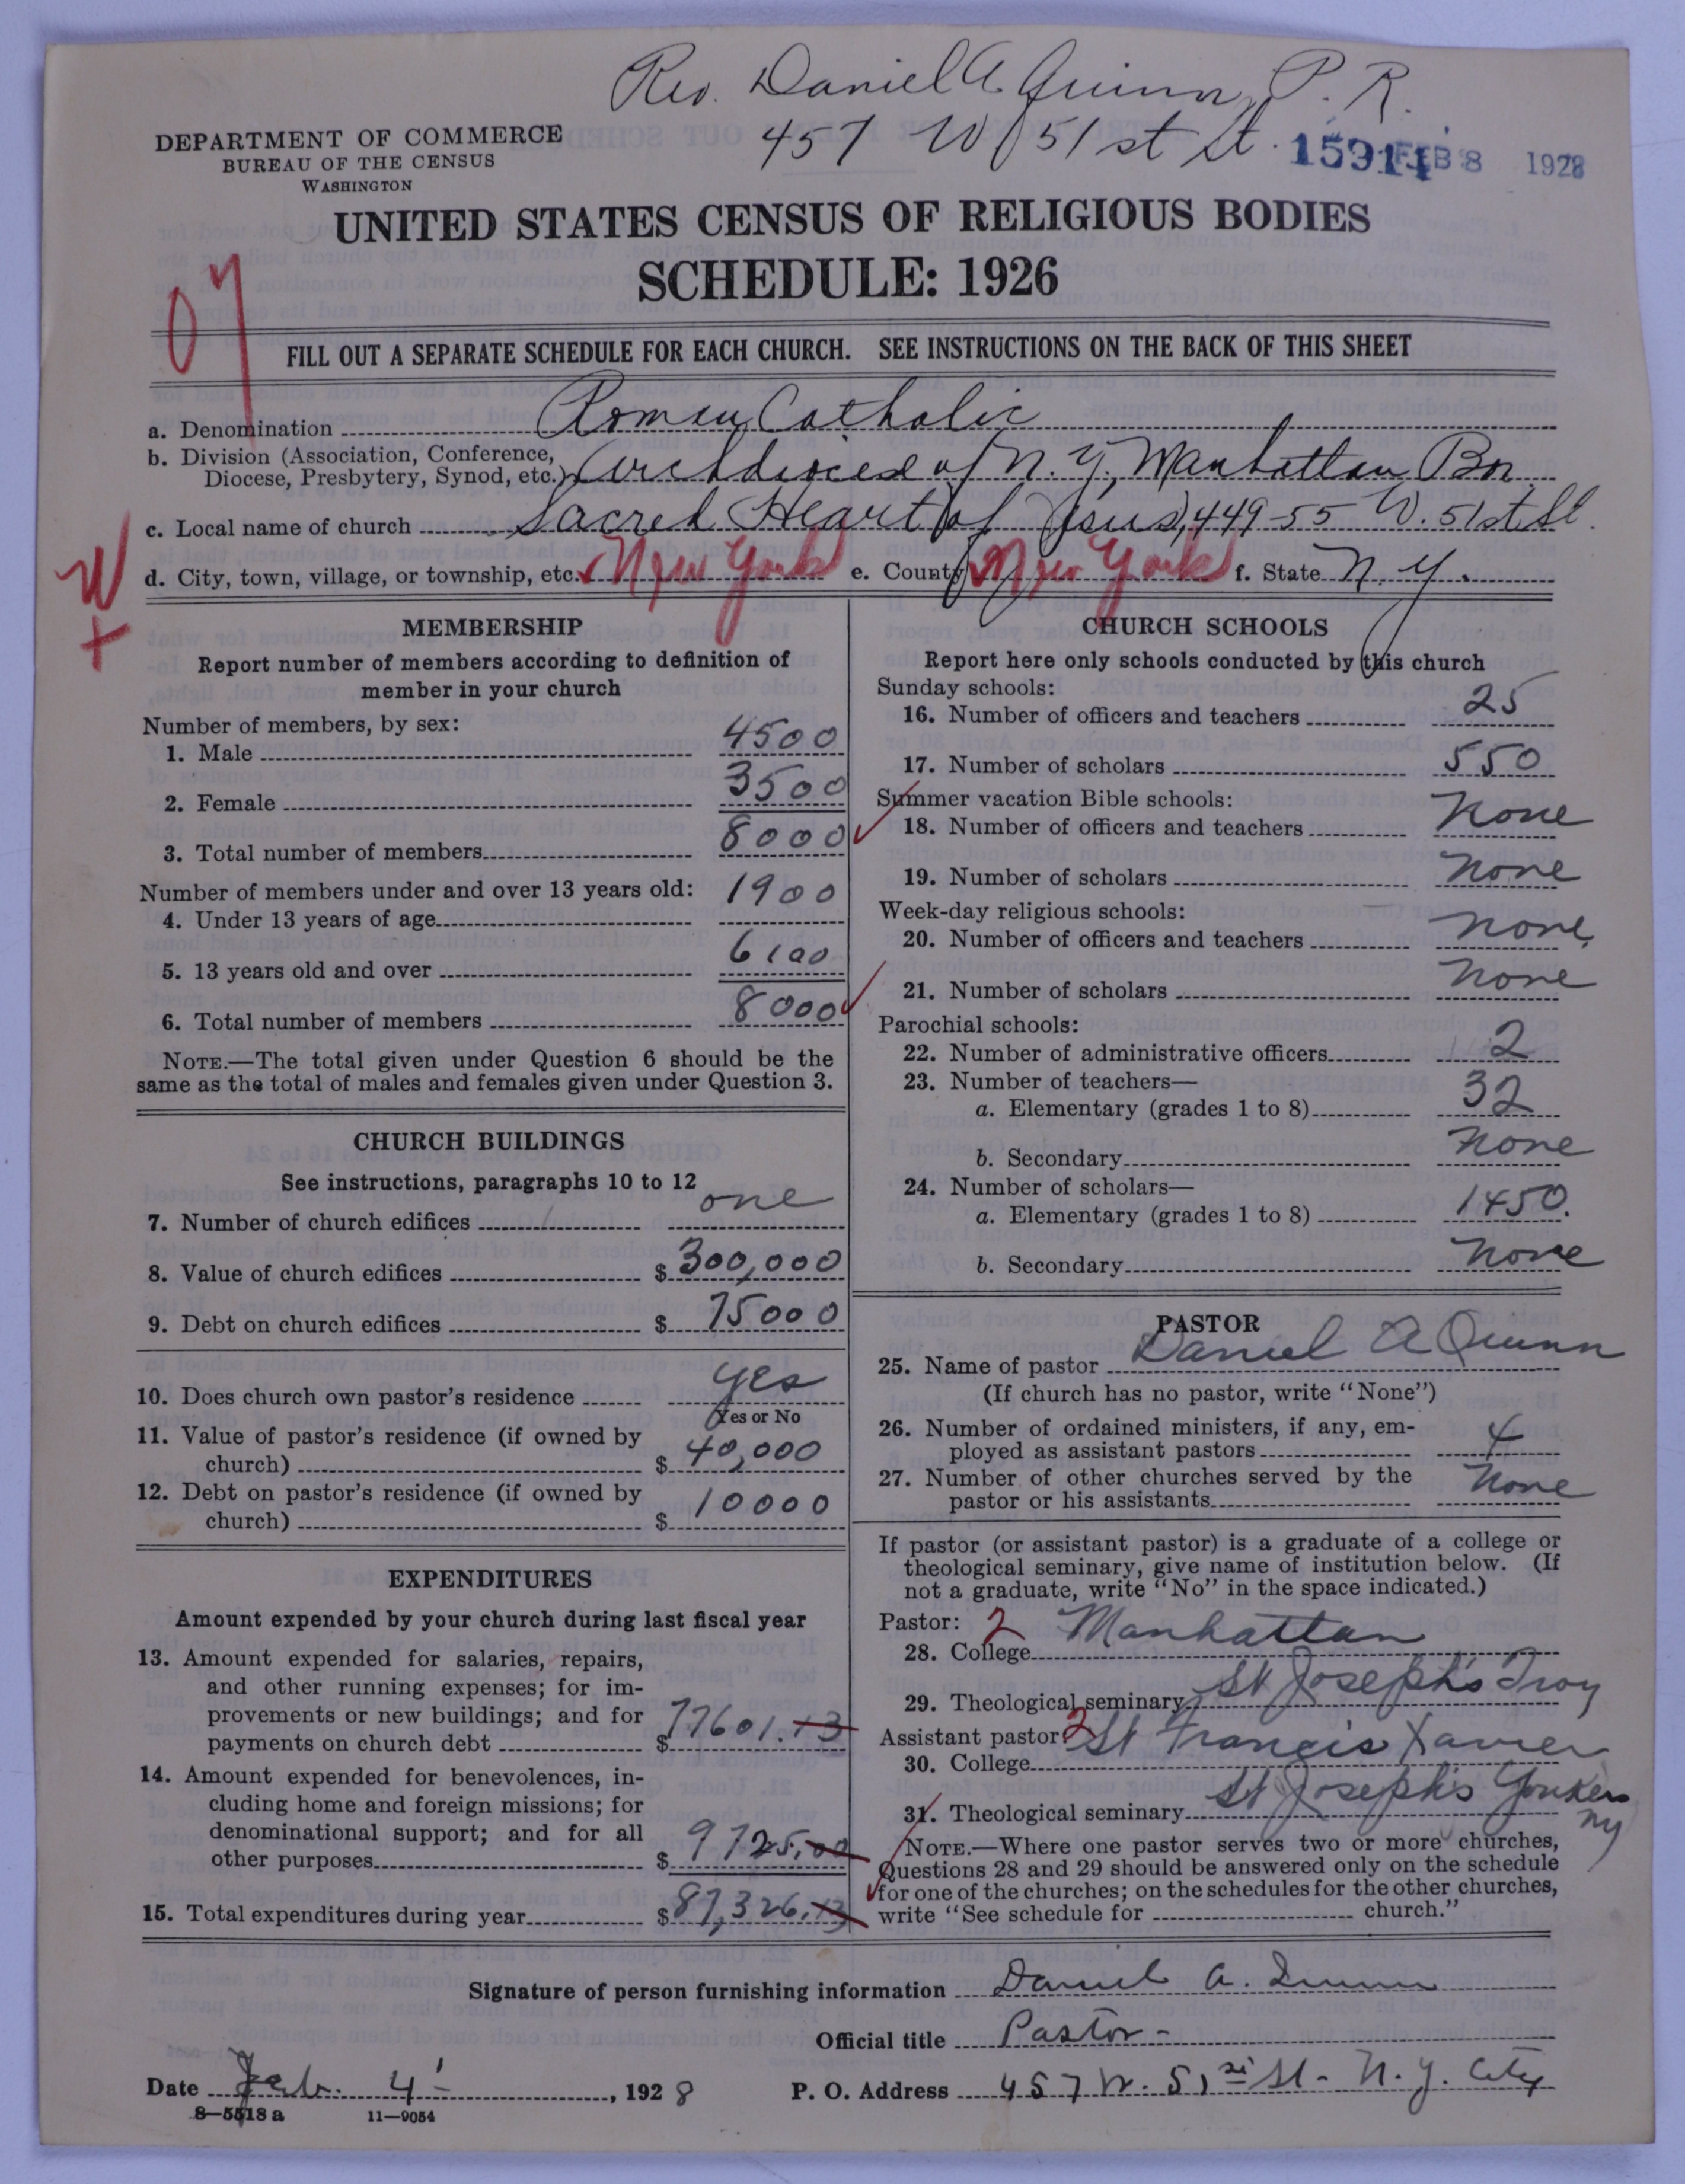 Rev. Daniel A Quinn, P. R.
457 W 51st St. 15914 FEB 8 1928
DEPARTMENT OF COMMERCE
BUREAU OF THE CENSUS
WASHINGTON
UNITED STATES CENSUS OF RELIGIOUS BODIES
SCHEDULE: 1926
07
FILL OUT A SEPARATE SCHEDULE FOR EACH CHURCH. SEE INSTRUCTIONS ON THE BACK OF THIS SHEET
a. Denomination Roman Catholic
b. Division (Association, Conference,
Diocese, Presbytery, Synod, etc.) Archdiocese of N. Y, Manhattan Bor.
c. Local name of church Sacred Heart (of Jesus), 449-55 W. 51st St.
d. City, town, village, or township, etc. New York e. County New York f. State N. Y.
W
+
MEMBERSHIP
Report number of members according to definition of
member in your church
Number of members, by sex:
1. Male 4500
2. Female 3500
3. Total number of members 8000
Number of members under and over 13 years old:
4. Under 13 years of age 1900
5. 13 years old and over 6100
6. Total number of members 8000
NOTE.—The total given under Question 6 should be the
same as the total of males and females given under Question 3.
CHURCH BUILDINGS
See instructions, paragraphs 10 to 12
7. Number of church edifices one
8. Value of church edifices $ 300,000
9. Debt on church edifices $ 75000
10. Does church own pastor's residence yes
Yes or No
11. Value of pastor's residence (if owned by
church) $ 40,000
12. Debt on pastor's residence (if owned by
church) $ 10000
EXPENDITURES
Amount expended by your church during last fiscal year
13. Amount expended for salaries, repairs,
and other running expenses; for im-
provements or new buildings; and for
payments on church debt $ 77601.13
14. Amount expended for benevolences, in-
cluding home and foreign missions; for
denominational support; and for all
other purposes $ 9725.00
15. Total expenditures during year $ 87,326.13
CHURCH SCHOOLS
Report here only schools conducted by this church
Sunday schools:
16. Number of officers and teachers 25
17. Number of scholars 550
Summer vacation Bible schools:
18. Number of officers and teachers None
19. Number of scholars None
Week-day religious schools:
20. Number of officers and teachers None
21. Number of scholars None
Parochial schools:
22. Number of administrative officers 2
23. Number of teachers—
a. Elementary (grades 1 to 8) 32
b. Secondary None
24. Number of scholars—
a. Elementary (grades 1 to 8) 1450.
b. Secondary None
PASTOR
25. Name of pastor Daniel A Quinn
(If church has no pastor, write "None")
26. Number of ordained ministers, if any, em-
ployed as assistant pastors 4
27. Number of other churches served by the
pastor or his assistants None
If pastor (or assistant pastor) is a graduate of a college or
theological seminary, give name of institution below. (If
not a graduate, write "No" in the space indicated.)
Pastor: 2
28. College Manhattan
29. Theological seminary St Joseph's Troy
Assistant pastor: 2
30. College St Francis Xavier
31. Theological seminary St Joseph's Yonkers
NY
NOTE.—Where one pastor serves two or more churches,
Questions 28 and 29 should be answered only on the schedule
for one of the churches; on the schedules for the other churches,
write "See schedule for church."
Signature of person furnishing information Daniel A. Quinn
Official title Pastor -
Date Feb. 4 -, 1928 P. O. Address 457 W. 51st St - N. Y. City
8—5518 a 11—9054